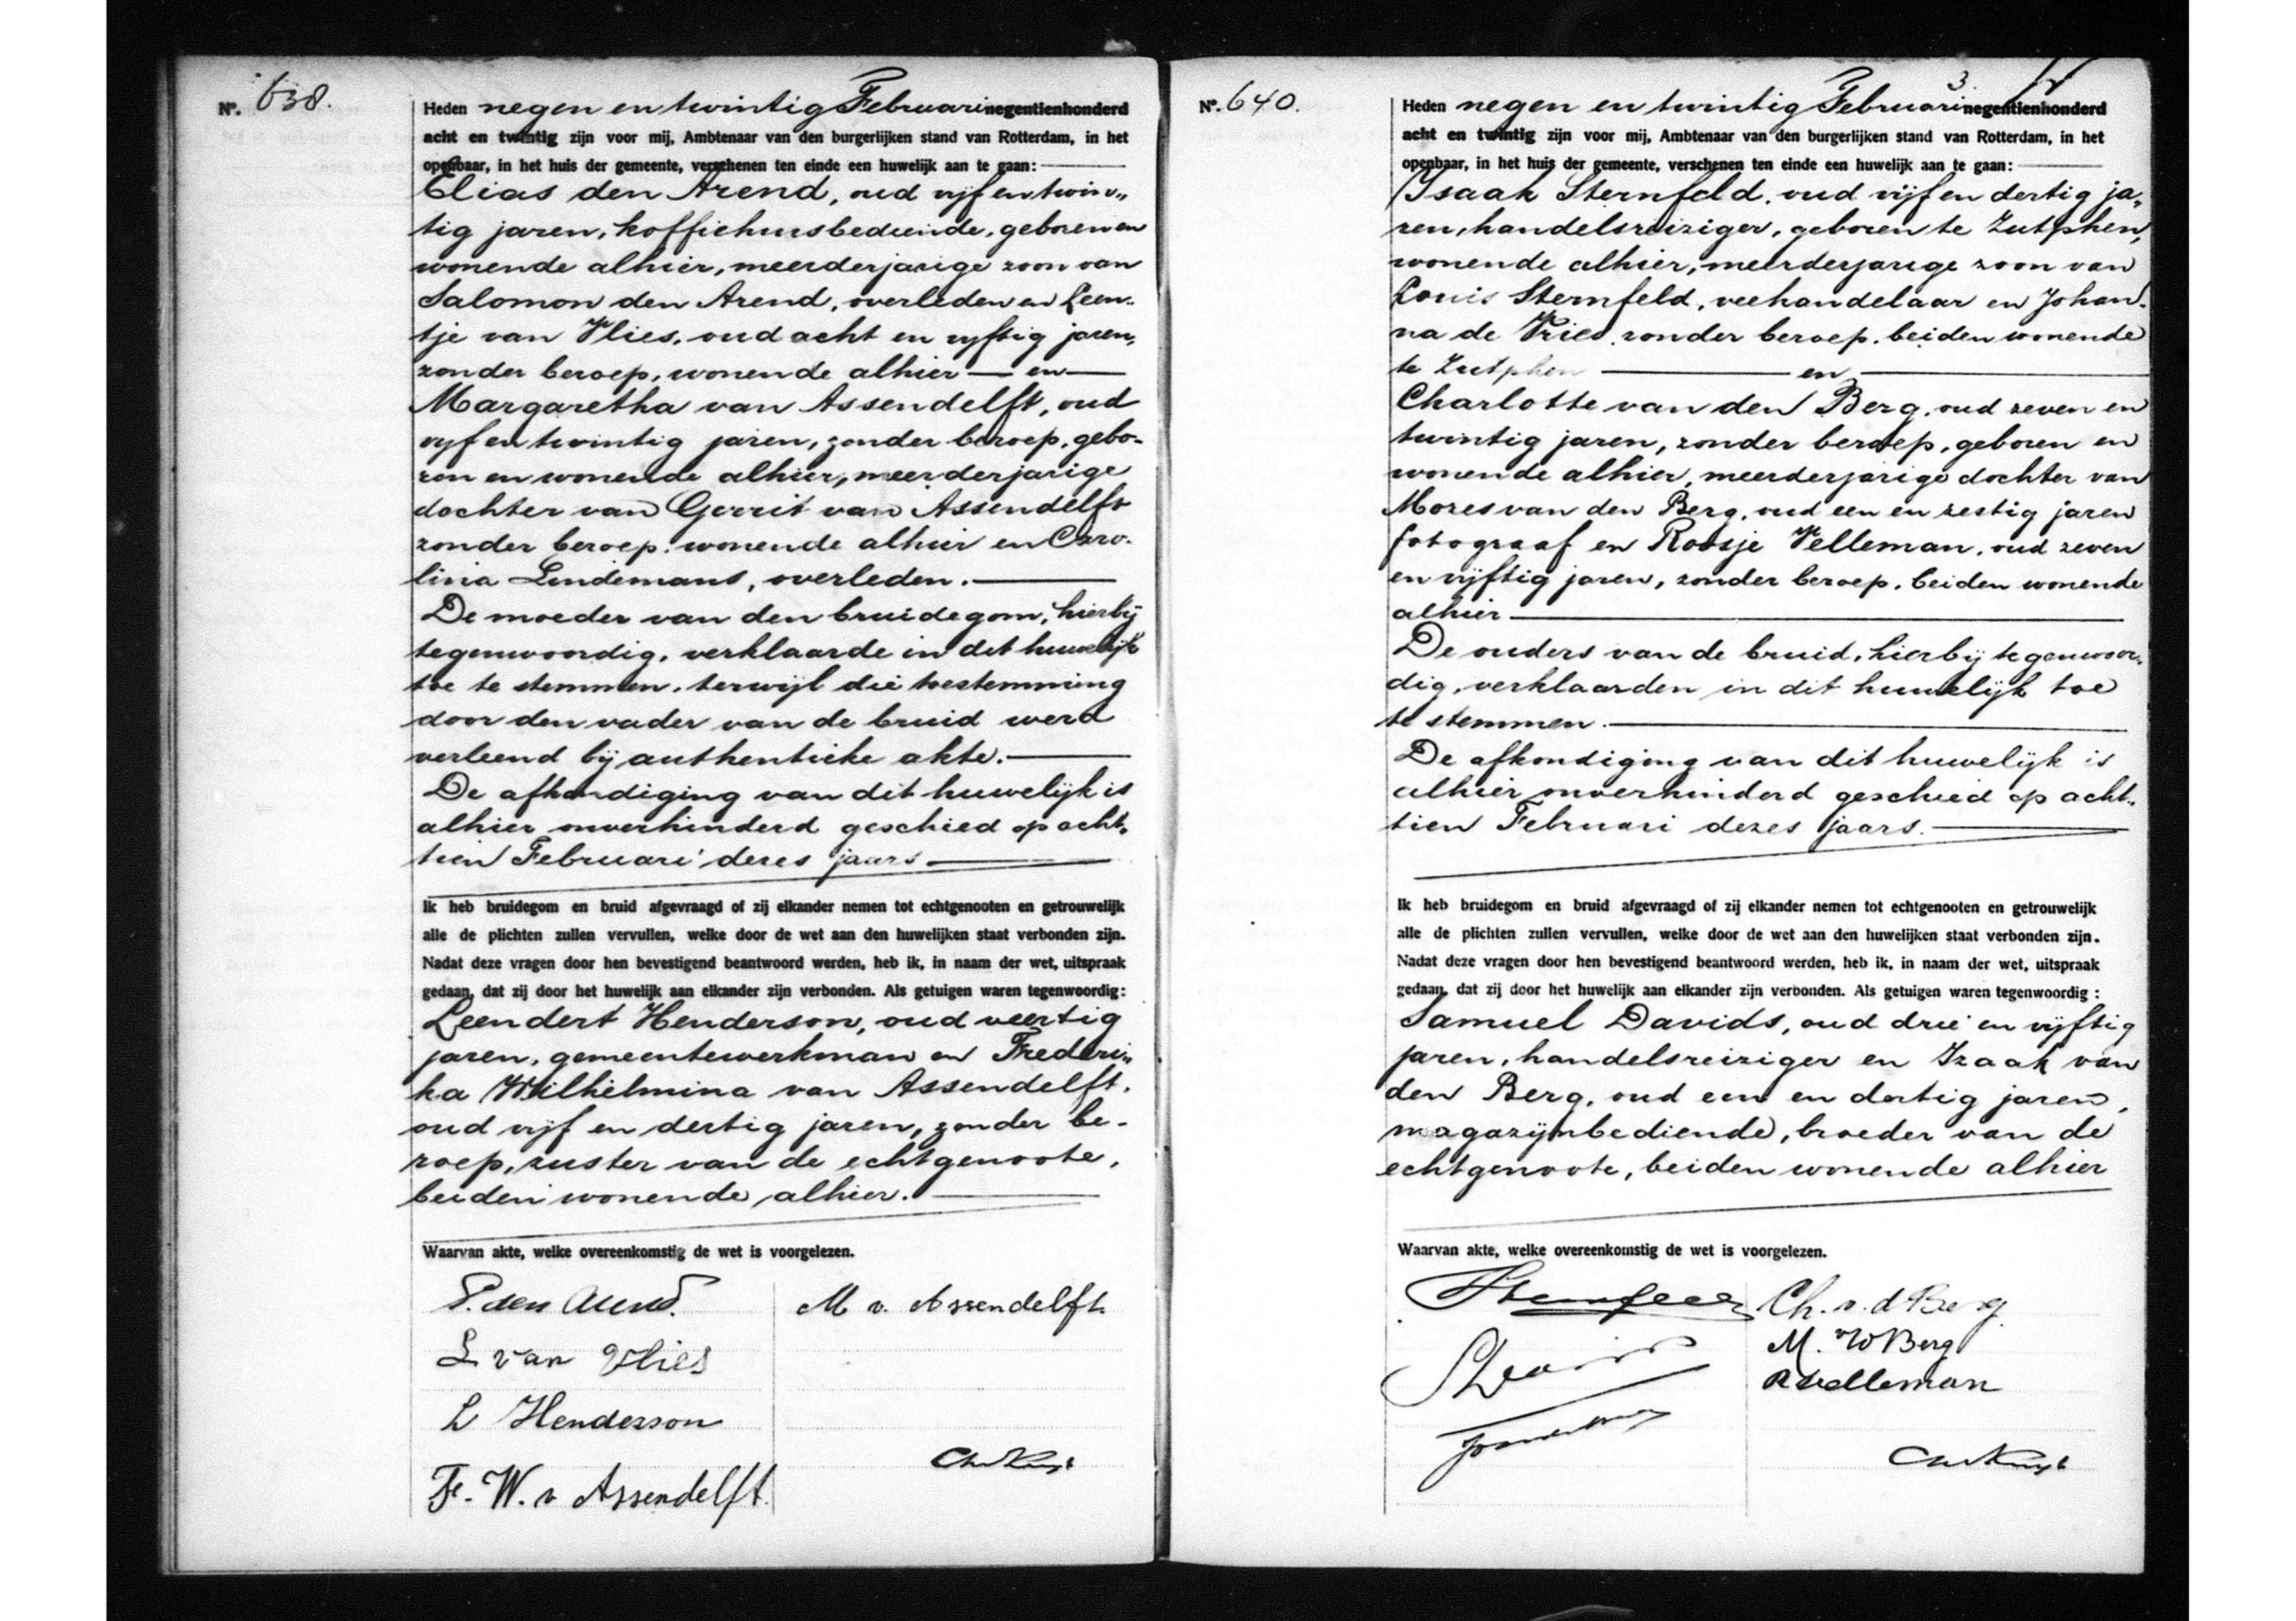 No. 638.
Heden negen en twintig Februari negentienhonderd
acht en twintig zijn voor mij, Ambtenaar van den burgerlijken stand van Rotterdam, in het
openbaar, in het huis der gemeente, verschenen ten einde een huwelijk aan te gaan:
Elias den Arend, oud vijf en twin„
tig jaren, koffiehuisbediende, geboren en
wonende alhier, meerderjarige zoon van
Salomon den Arend, overleden en Leen-
tje van Vlies, oud acht en vijftig jaren,
zonder beroep, wonende alhier — en —
Margaretha van Assendelft, oud
vijf en twintig jaren, zonder beroep, gebo-
ren en wonende alhier, meerderjarige
dochter van Gerrit van Assendelft
zonder beroep, wonende alhier en Caro-
lina Lindemans, overleden. —
De moeder van den bruidegom, hierbij
tegenwoordig, verklaarde in dit huwelijk
toe te stemmen, terwijl die toestemming
door den vader van de bruid werd
verleend bij authentieke akte. —
De afkondiging van dit huwelijk is
alhier onverhinderd geschied op acht„
tien Februari dezes jaars —
Ik heb bruidegom en bruid afgevraagd of zij elkander nemen tot echtgenooten en getrouwelijk
alle de plichten zullen vervullen, welke door de wet aan den huwelijken staat verbonden zijn.
Nadat deze vragen door hen bevestigend beantwoord werden, heb ik, in naam der wet, uitspraak
gedaan, dat zij door het huwelijk aan elkander zijn verbonden. Als getuigen waren tegenwoordig:
Leendert Henderson, oud veertig
jaren, gemeentewerkman en Frederi„
ka Wilhelmina van Assendelft,
oud vijf en dertig jaren, zonder be-
roep, zuster van de echtgenoote,
beiden wonende alhier. —
Waarvan akte, welke overeenkomstig de wet is voorgelezen.
den Arend.
M v. Assendelft
L van Vlies
L Henderson
Fr. W. v Assendelft.
No. 640.
3
Heden negen en twintig Februari negentienhonderd
acht en twintig zijn voor mij, Ambtenaar van den burgerlijken stand van Rotterdam, in het
openbaar, in het huis der gemeente, verschenen ten einde een huwelijk aan te gaan:
Isaak Sternfeld, oud vijf en dertig ja„
ren, handelsreiziger, geboren te Zutphen,
wonende alhier, meerderjarige zoon van
Louis Sternfeld, veehandelaar en Johan-
na de Vries, zonder beroep, beiden wonende
te Zutphen — en —
Charlotte van den Berg, oud zeven en
twintig jaren, zonder beroep, geboren en
wonende alhier, meerderjarige dochter van
Mozes van den Berg, oud een en zestig jaren
fotograaf en Roosje Velleman, oud zeven
en vijftig jaren, zonder beroep, beiden wonende
alhier —
De ouders van de bruid, hierbij tegenwoor„
dig, verklaarden in dit huwelijk toe
te stemmen. —
De afkondiging van dit huwelijk is
alhier onverhinderd geschied op acht„
tien Februari dezes jaars. —
Ik heb bruidegom en bruid afgevraagd of zij elkander nemen tot echtgenooten en getrouwelijk
alle de plichten zullen vervullen, welke door de wet aan den huwelijken staat verbonden zijn.
Nadat deze vragen door hen bevestigend beantwoord werden, heb ik, in naam der wet, uitspraak
gedaan, dat zij door het huwelijk aan elkander zijn verbonden. Als getuigen waren tegenwoordig:
Samuel Davids, oud drie en vijftig
jaren, handelsreiziger en Izaak van
den Berg, oud een en dertig jaren,
magazijnbediende, broeder van de
echtgenoote, beiden wonende alhier
Waarvan akte, welke overeenkomstig de wet is voorgelezen.
Ch. v. d Berg
M. vd Berg
R Velleman